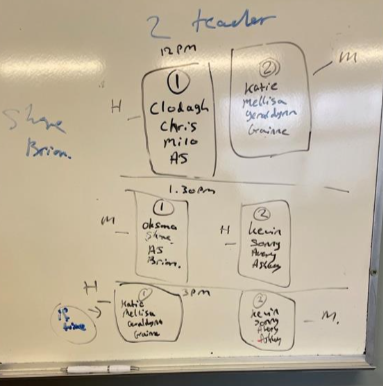 2 teacher
12PM
H
①
Clodagh
Chris
Milo
AS
②
Katie
Mellisa
Geraldynn
Grainne
M
Shane
Brian.
1.30pm
M
①
Shane
AS
Brian.
H
②
Kevin
Sonny
Avery
Ashley
3PM
H
①
Katie
Mellisa
Geraldynn
Grainne
if
time
②
Kevin
Sonny
Avery
Ashley
M.